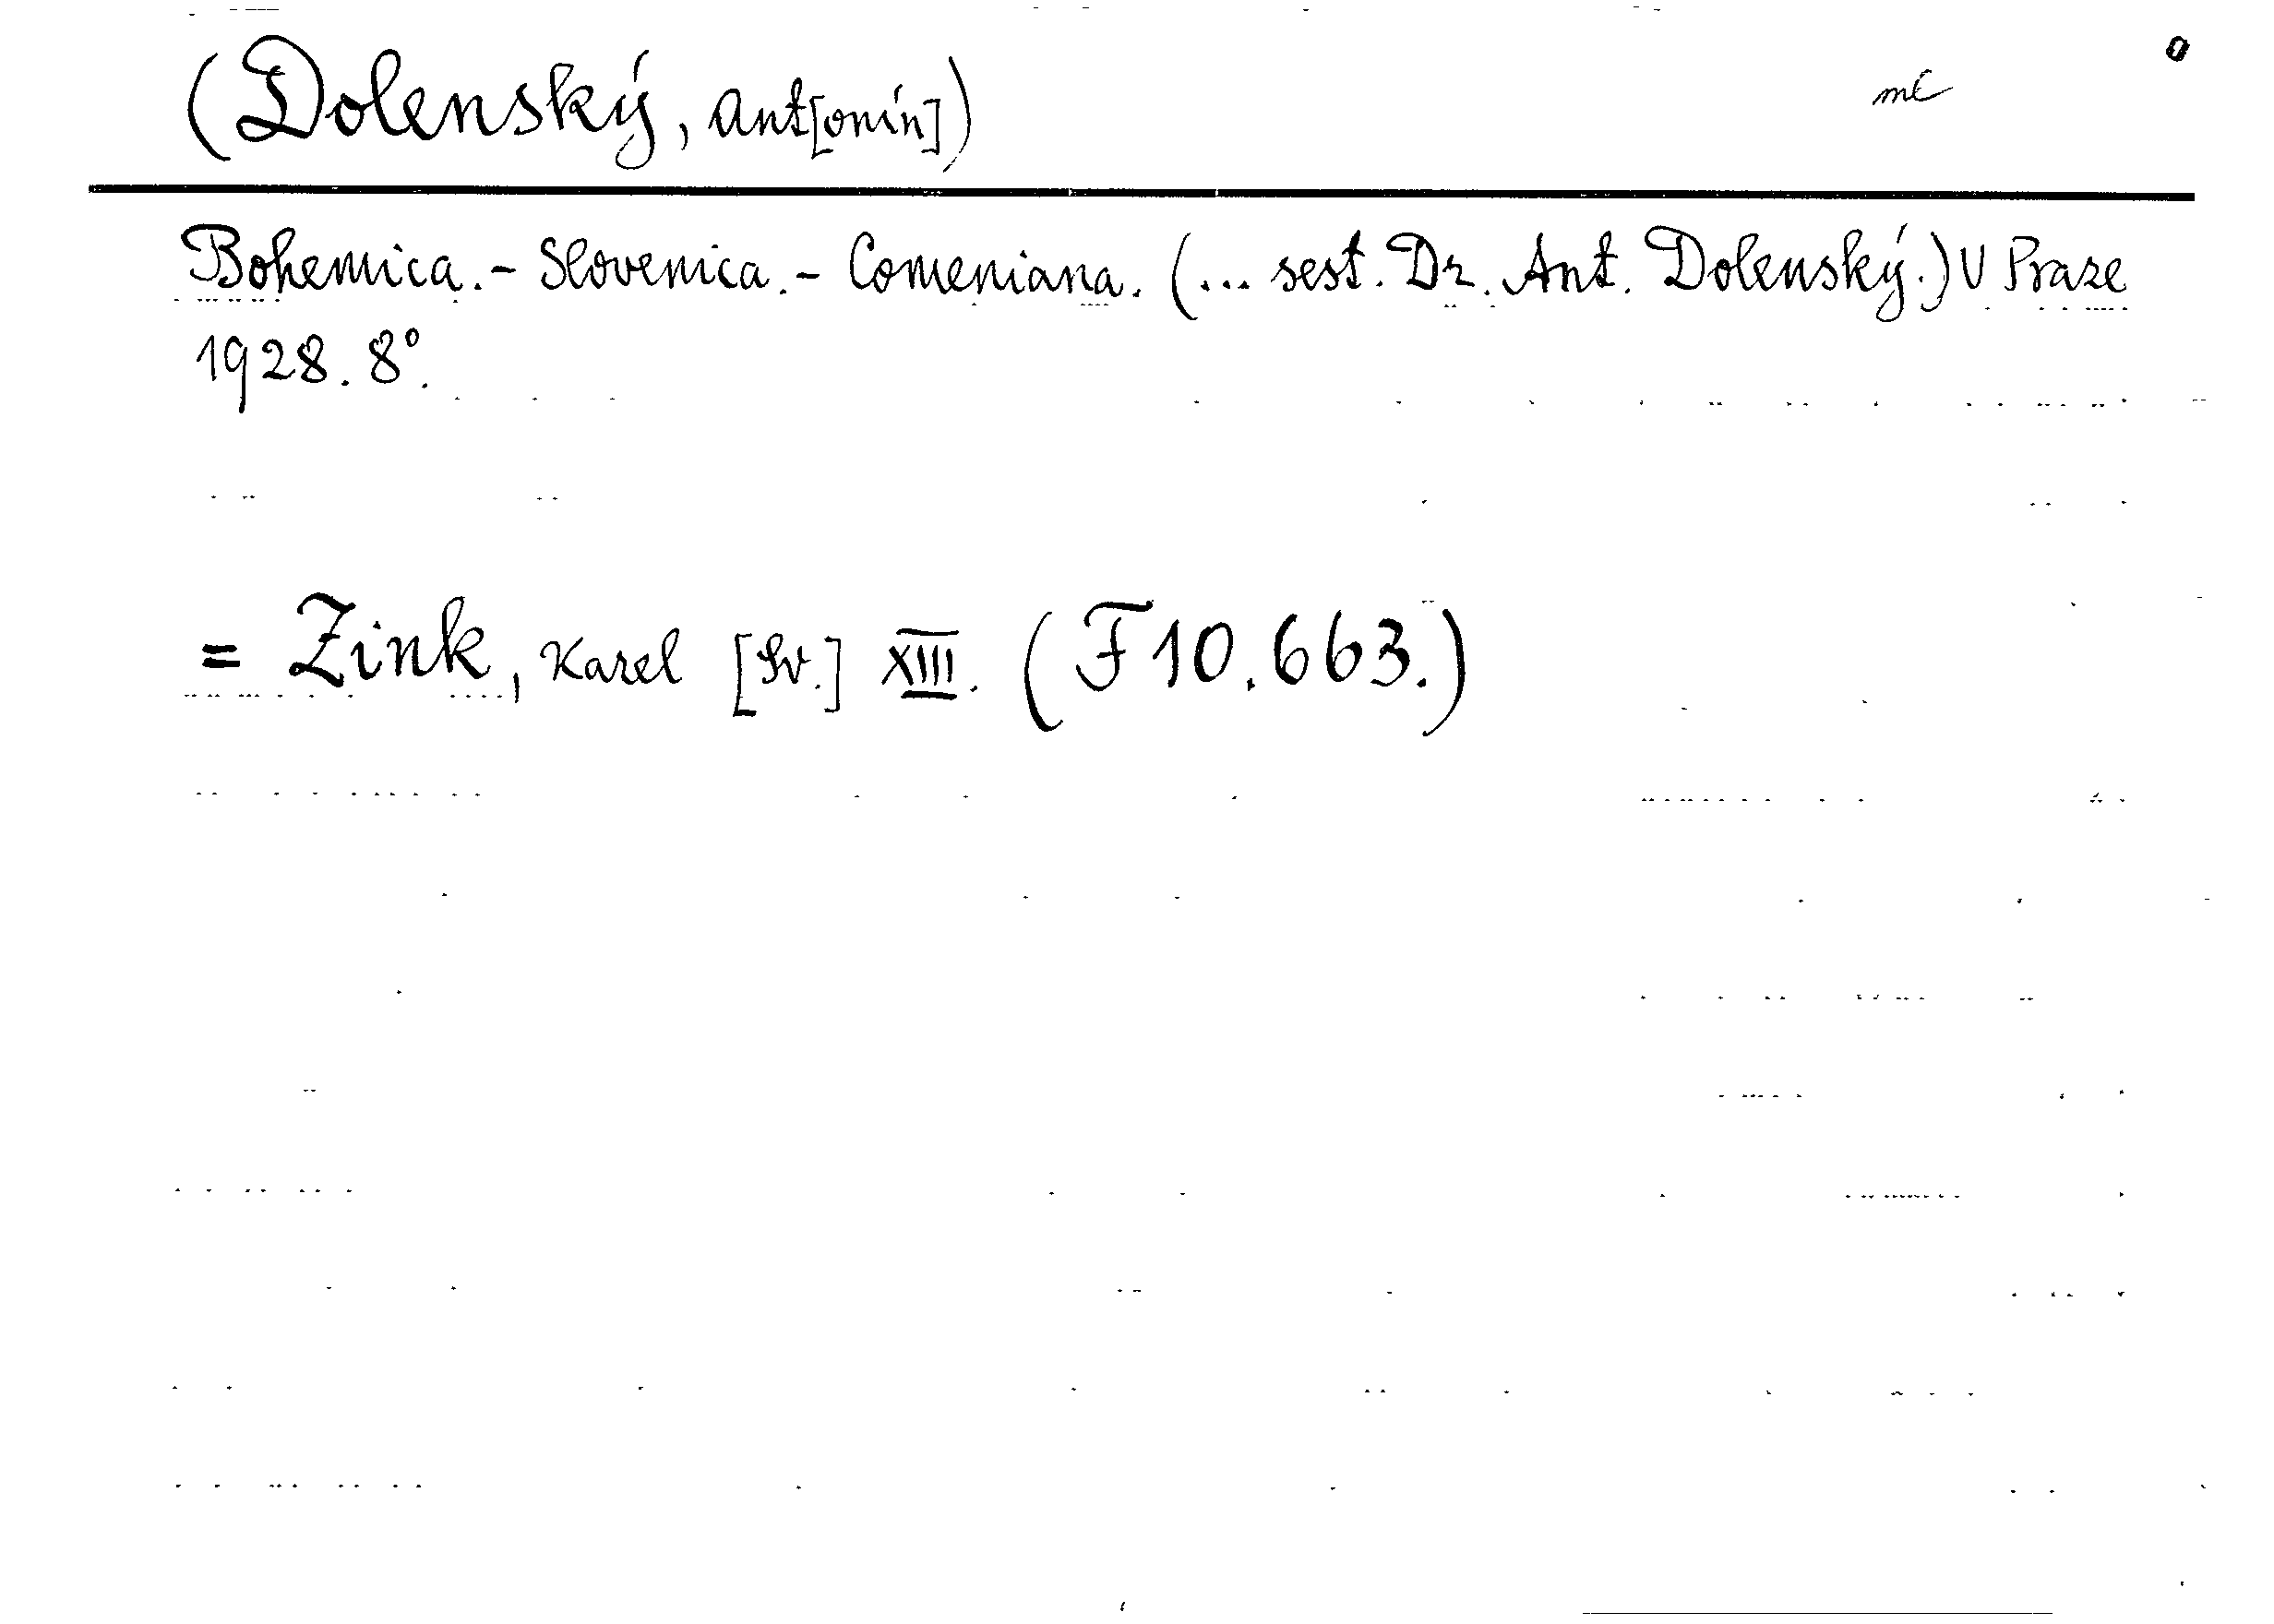 (Dolenský, Ant[onín])
Bohemica.- Slovenica.- Comeniana. (... sest. Dr. Ant. Dolenský.) V Praze
1928. 8°.
= Zink, Karel [Sv.] XIII. (F 10.663.)